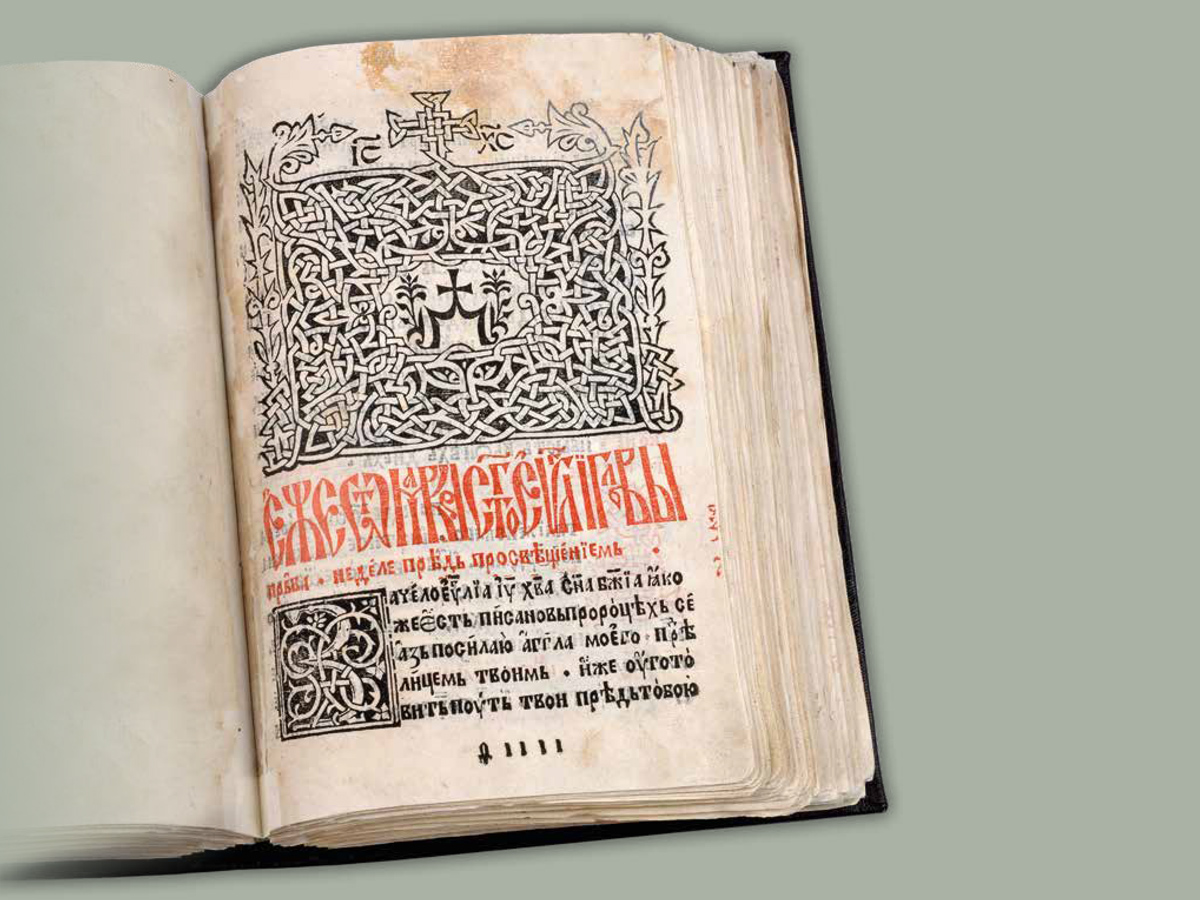 ІС ХС
ЕЖЕ Ѿ МАРКА СТ҃ОЕ ЕѴ҃ЛЇЕ ГЛАВЫ
прьва · неделе прѣдь просвѣщенїемь ·
ачело еѵ҃лїа іу҃ хв҃а сн҃а бж҃їа ꙗко
же ѥсть писано вь пророцѣхь се
азь посилаю агг҃ла моего · прѣ
лицемь твоимь · иже оугото
вить поуть твои прѣдь тобою